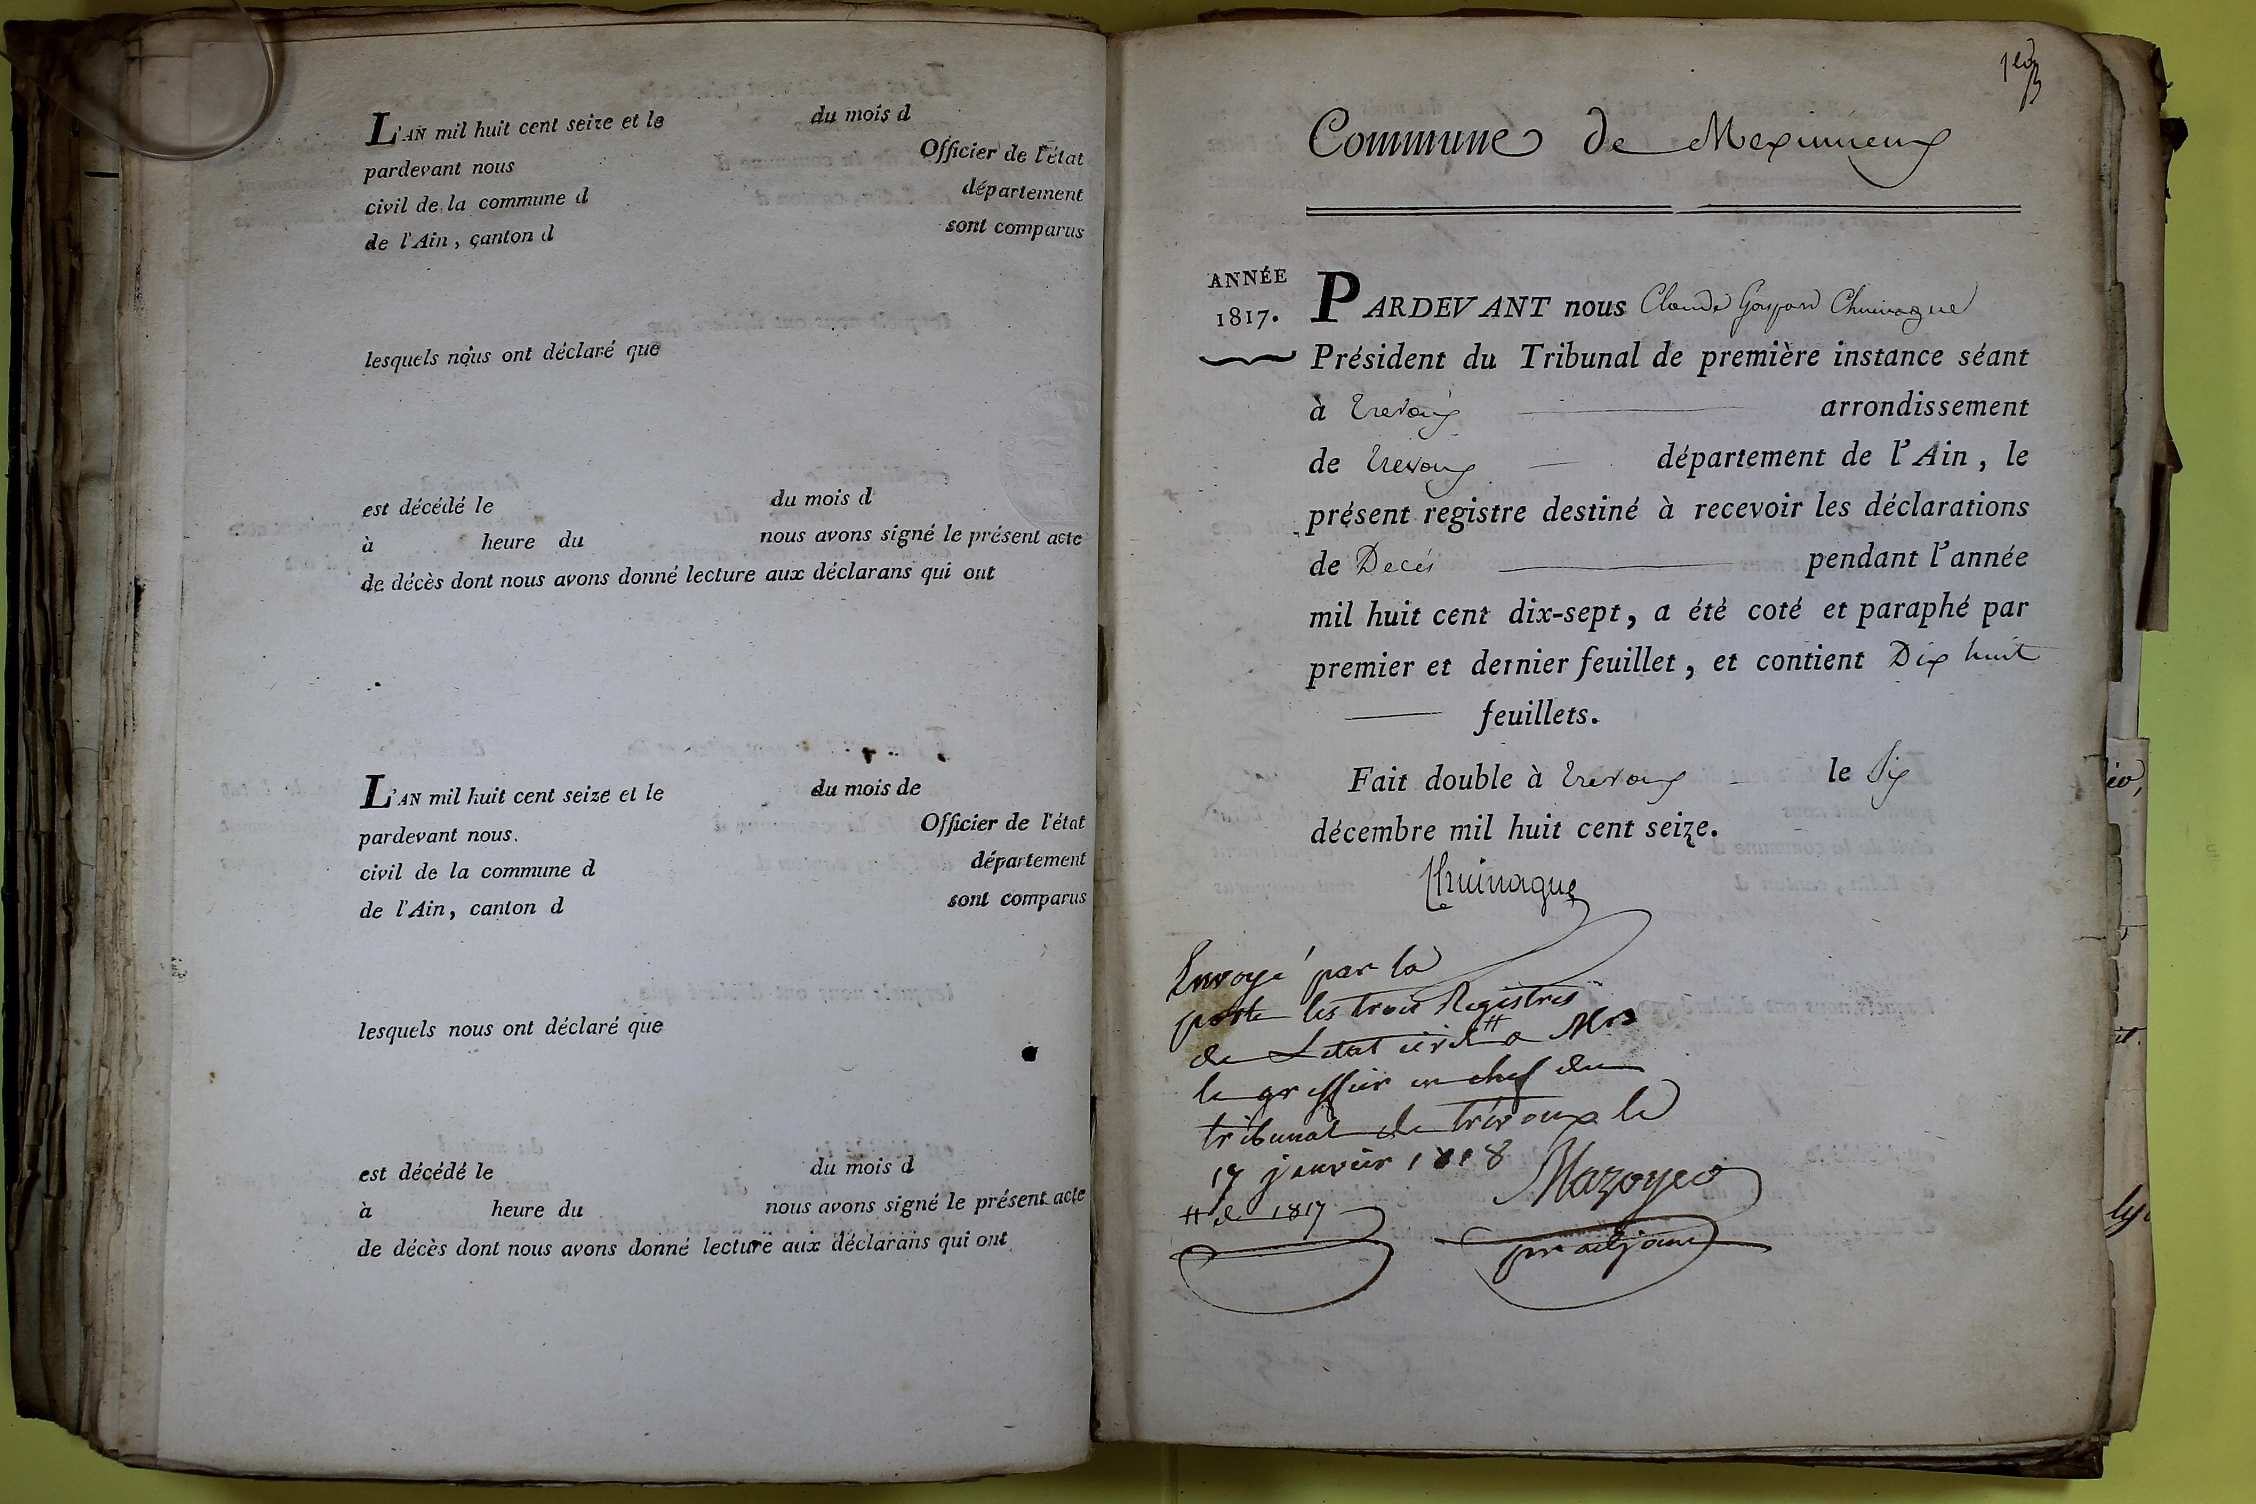 L'AN mil huit cent seize et le du mois d
pardevant nous Officier de l'état
civil de la commune d département
de l'Ain, canton d sont comparus
lesquels nous ont déclaré que
est décédé le du mois d
à heure du nous avons signé le présent acte
de décès dont nous avons donné lecture aux déclarans qui ont
L'AN mil huit cent seize et le du mois de
pardevant nous. Officier de l'état
civil de la commune d département
de l'Ain, canton d sont comparus
lesquels nous ont déclaré que
est décédé le du mois d
à heure du nous avons signé le présent acte
de décès dont nous avons donné lecture aux déclarans qui ont
Commune de Meximieux
ANNÉE
1817.
PARDEVANT nous Claude Gaspard
Président du Tribunal de première instance séant
à Trevoux arrondissement
de Trevoux département de l'Ain, le
présent registre destiné à recevoir les déclarations
de Decés pendant l'année
mil huit cent dix-sept, a été coté et paraphé par
premier et dernier feuillet, et contient Dix huit
feuillets.
Fait double à Trevoux le Six
décembre mil huit cent seize.
Envoyé par la
poste les trois Registres
de Letat civil # a Mr
le greffier en chef du
tribunal de trévoux le
17 janvier 1818
# de 1817
Mazoyer
pr adjoint